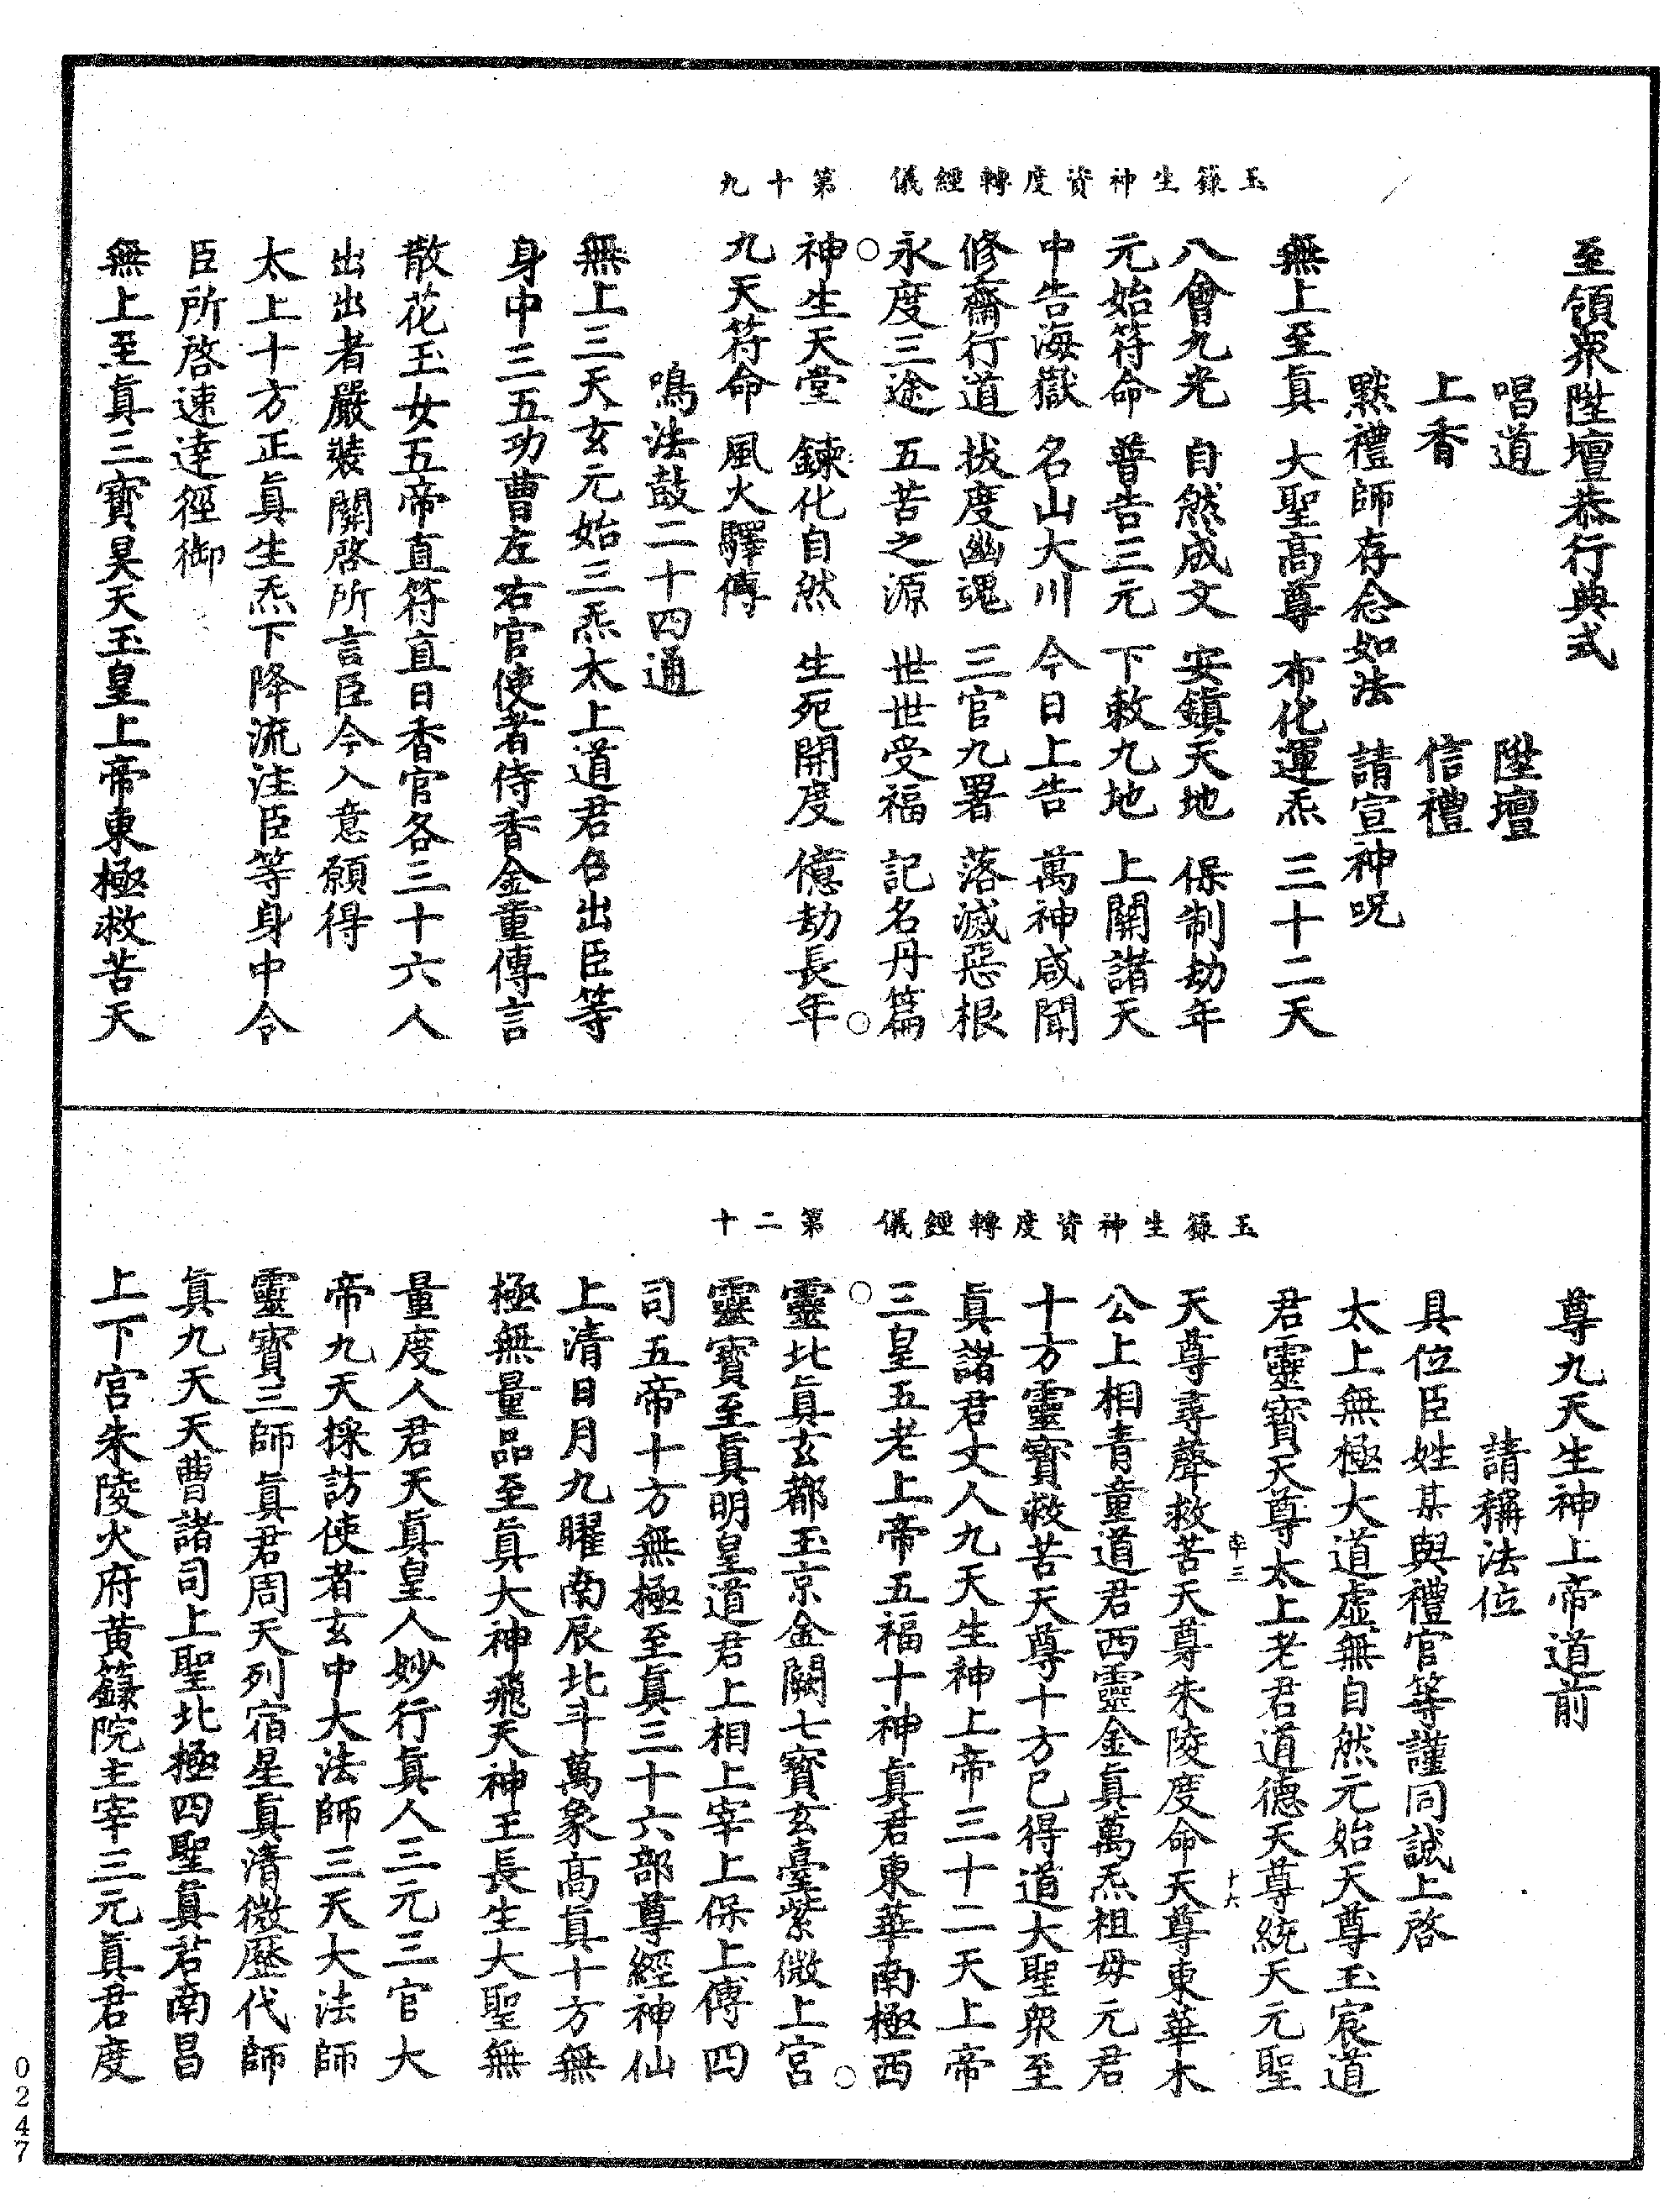 玉籙生神資度轉經儀　第十九
至領衆陞壇恭行典式
唱道　陞壇
上香　信禮
默禮師存念如法　請宣神呪
無上至眞　大聖高尊　布化運炁　三十二天
八會九光　自然成文　安鎭天地　保制劫年
元始符命　普告三元　下敕九地　上開諸天
中告海嶽　名山大川　今日上告　萬神咸聞
修齋行道　拔度幽魂　三官九署　落滅惡根
永度三途　五苦之源　世世受福　記名丹篇
神生天堂　鍊化自然　生死開度　億劫長年
九天符命　風火驛傳
鳴法鼓二十四通
無上三天玄元始三炁太上道君召出臣等
身中三五功曹左右官使者侍香金童傳言
散花玉女五帝直符直日香官各三十六人
出出者嚴裝關啓所言臣今入意願得
太上十方正眞生炁下降流注臣等身中令
臣所啓速達徑御
無上至眞三寶昊天玉皇上帝東極救苦天
玉籙生神資度轉經儀　第二十
尊九天生神上帝道前
請稱法位
具位臣姓某與禮官等謹同誠上啓
太上無極大道虛無自然元始天尊玉宸道
君靈寶天尊太上老君道德天尊統天元聖
天尊尋聲救苦天尊朱陵度命天尊東華木
公上相青童道君西靈金眞萬炁祖母元君
十方靈寶救苦天尊十方已得道大聖衆至
眞諸君丈人九天生神上帝三十二天上帝
三皇五老上帝五福十神眞君東華南極西
靈北眞玄都玉京金闕七寶玄臺紫微上宮
靈寶至眞明皇道君上相上宰上保上傅四
司五帝十方無極至眞三十六部尊經神仙
上清日月九曜南辰北斗萬象高眞十方無
極無量品至眞大神飛天神王長生大聖無
量度人君天眞皇人妙行眞人三元三官大
帝九天採訪使者玄中大法師三天大法師
靈寶三師眞君周天列宿星眞清微歷代師
眞九天天曹諸司上聖北極四聖眞君南昌
上下宮朱陵火府黃籙院主宰三元眞君度
三
十六
0247